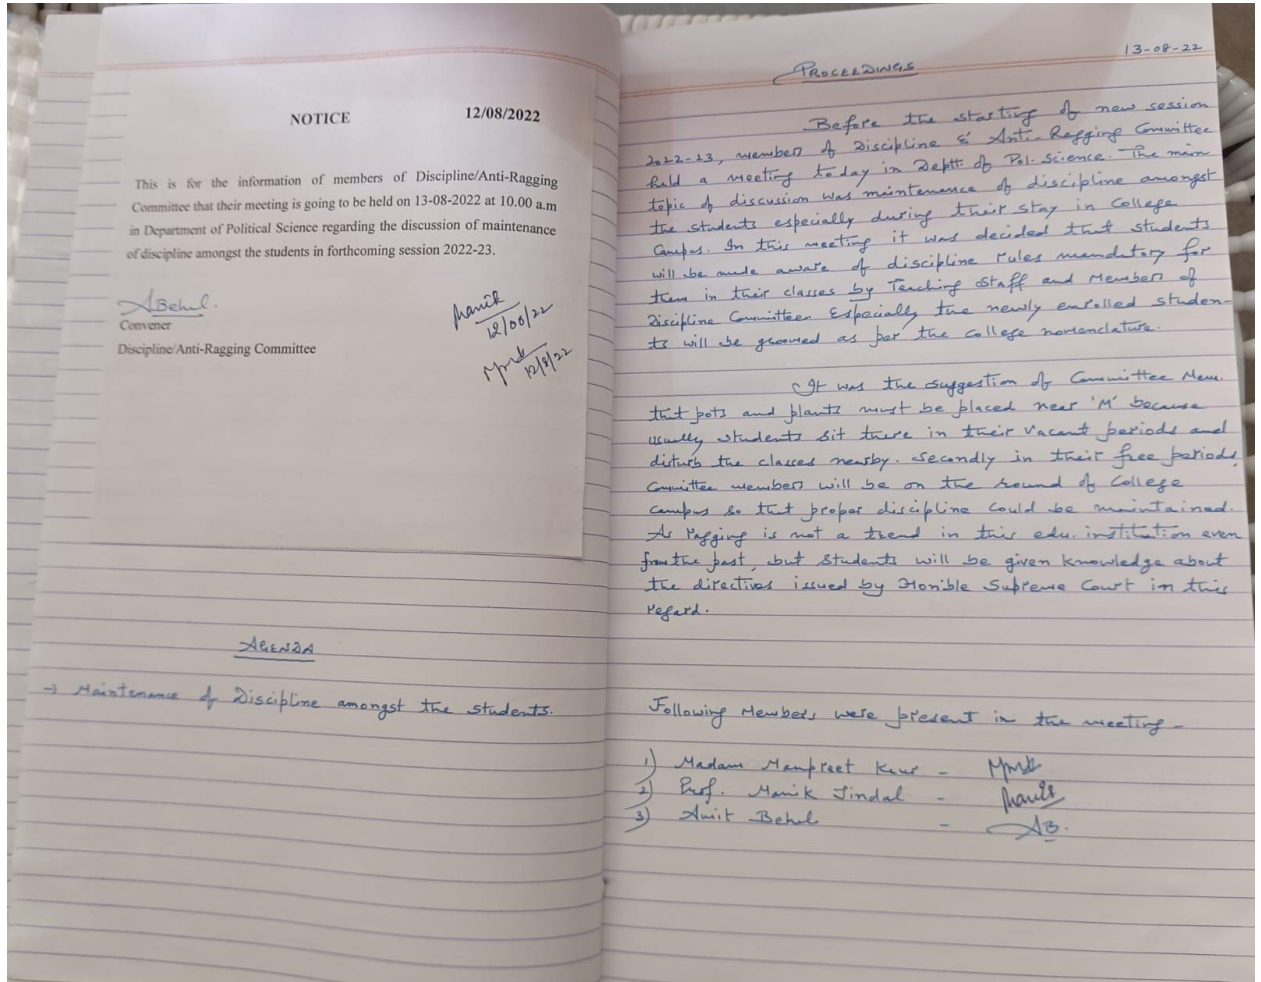 NOTICE 12/08/2022
This is for the information of members of Discipline/Anti-Ragging
Committee that their meeting is going to be held on 13-08-2022 at 10.00 a.m
in Department of Political Science regarding the discussion of maintenance
of discipline amongst the students in forthcoming session 2022-23.
ABehul.
Convener
Discipline/Anti-Ragging Committee
Manik
12/08/22
12/8/22
AGENDA
→ Maintenance of Discipline amongst the students.
13-08-22
PROCEEDINGS
Before the starting of new session
2022-23, members of Discipline & Anti-Ragging Committee
held a meeting today in Deptt. of Pol. Science. The main
topic of discussion was maintenance of discipline amongst
the students especially during their stay in College
Campus. In this meeting it was decided that students
will be made aware of discipline rules mandatory for
them in their classes by Teaching Staff and Members of
Discipline Committee. Especially the newly enrolled studen-
ts will be groomed as per the College nomenclature.
It was the suggestion of Committee Mem.
that pots and plants must be placed near 'M' because
usually students sit there in their vacant periods and
disturb the classes nearby. Secondly in their free periods,
Committee members will be on the round of College
campus so that proper discipline could be maintained.
As ragging is not a trend in this edu. institution even
from the past, but students will be given knowledge about
the directives issued by Hon'ble Supreme Court in this
regard.
Following Members were present in the meeting -
1) Madam Manpreet Kaur -
2) Prof. Manik Jindal - Manik
3) Amit Behul - AB.